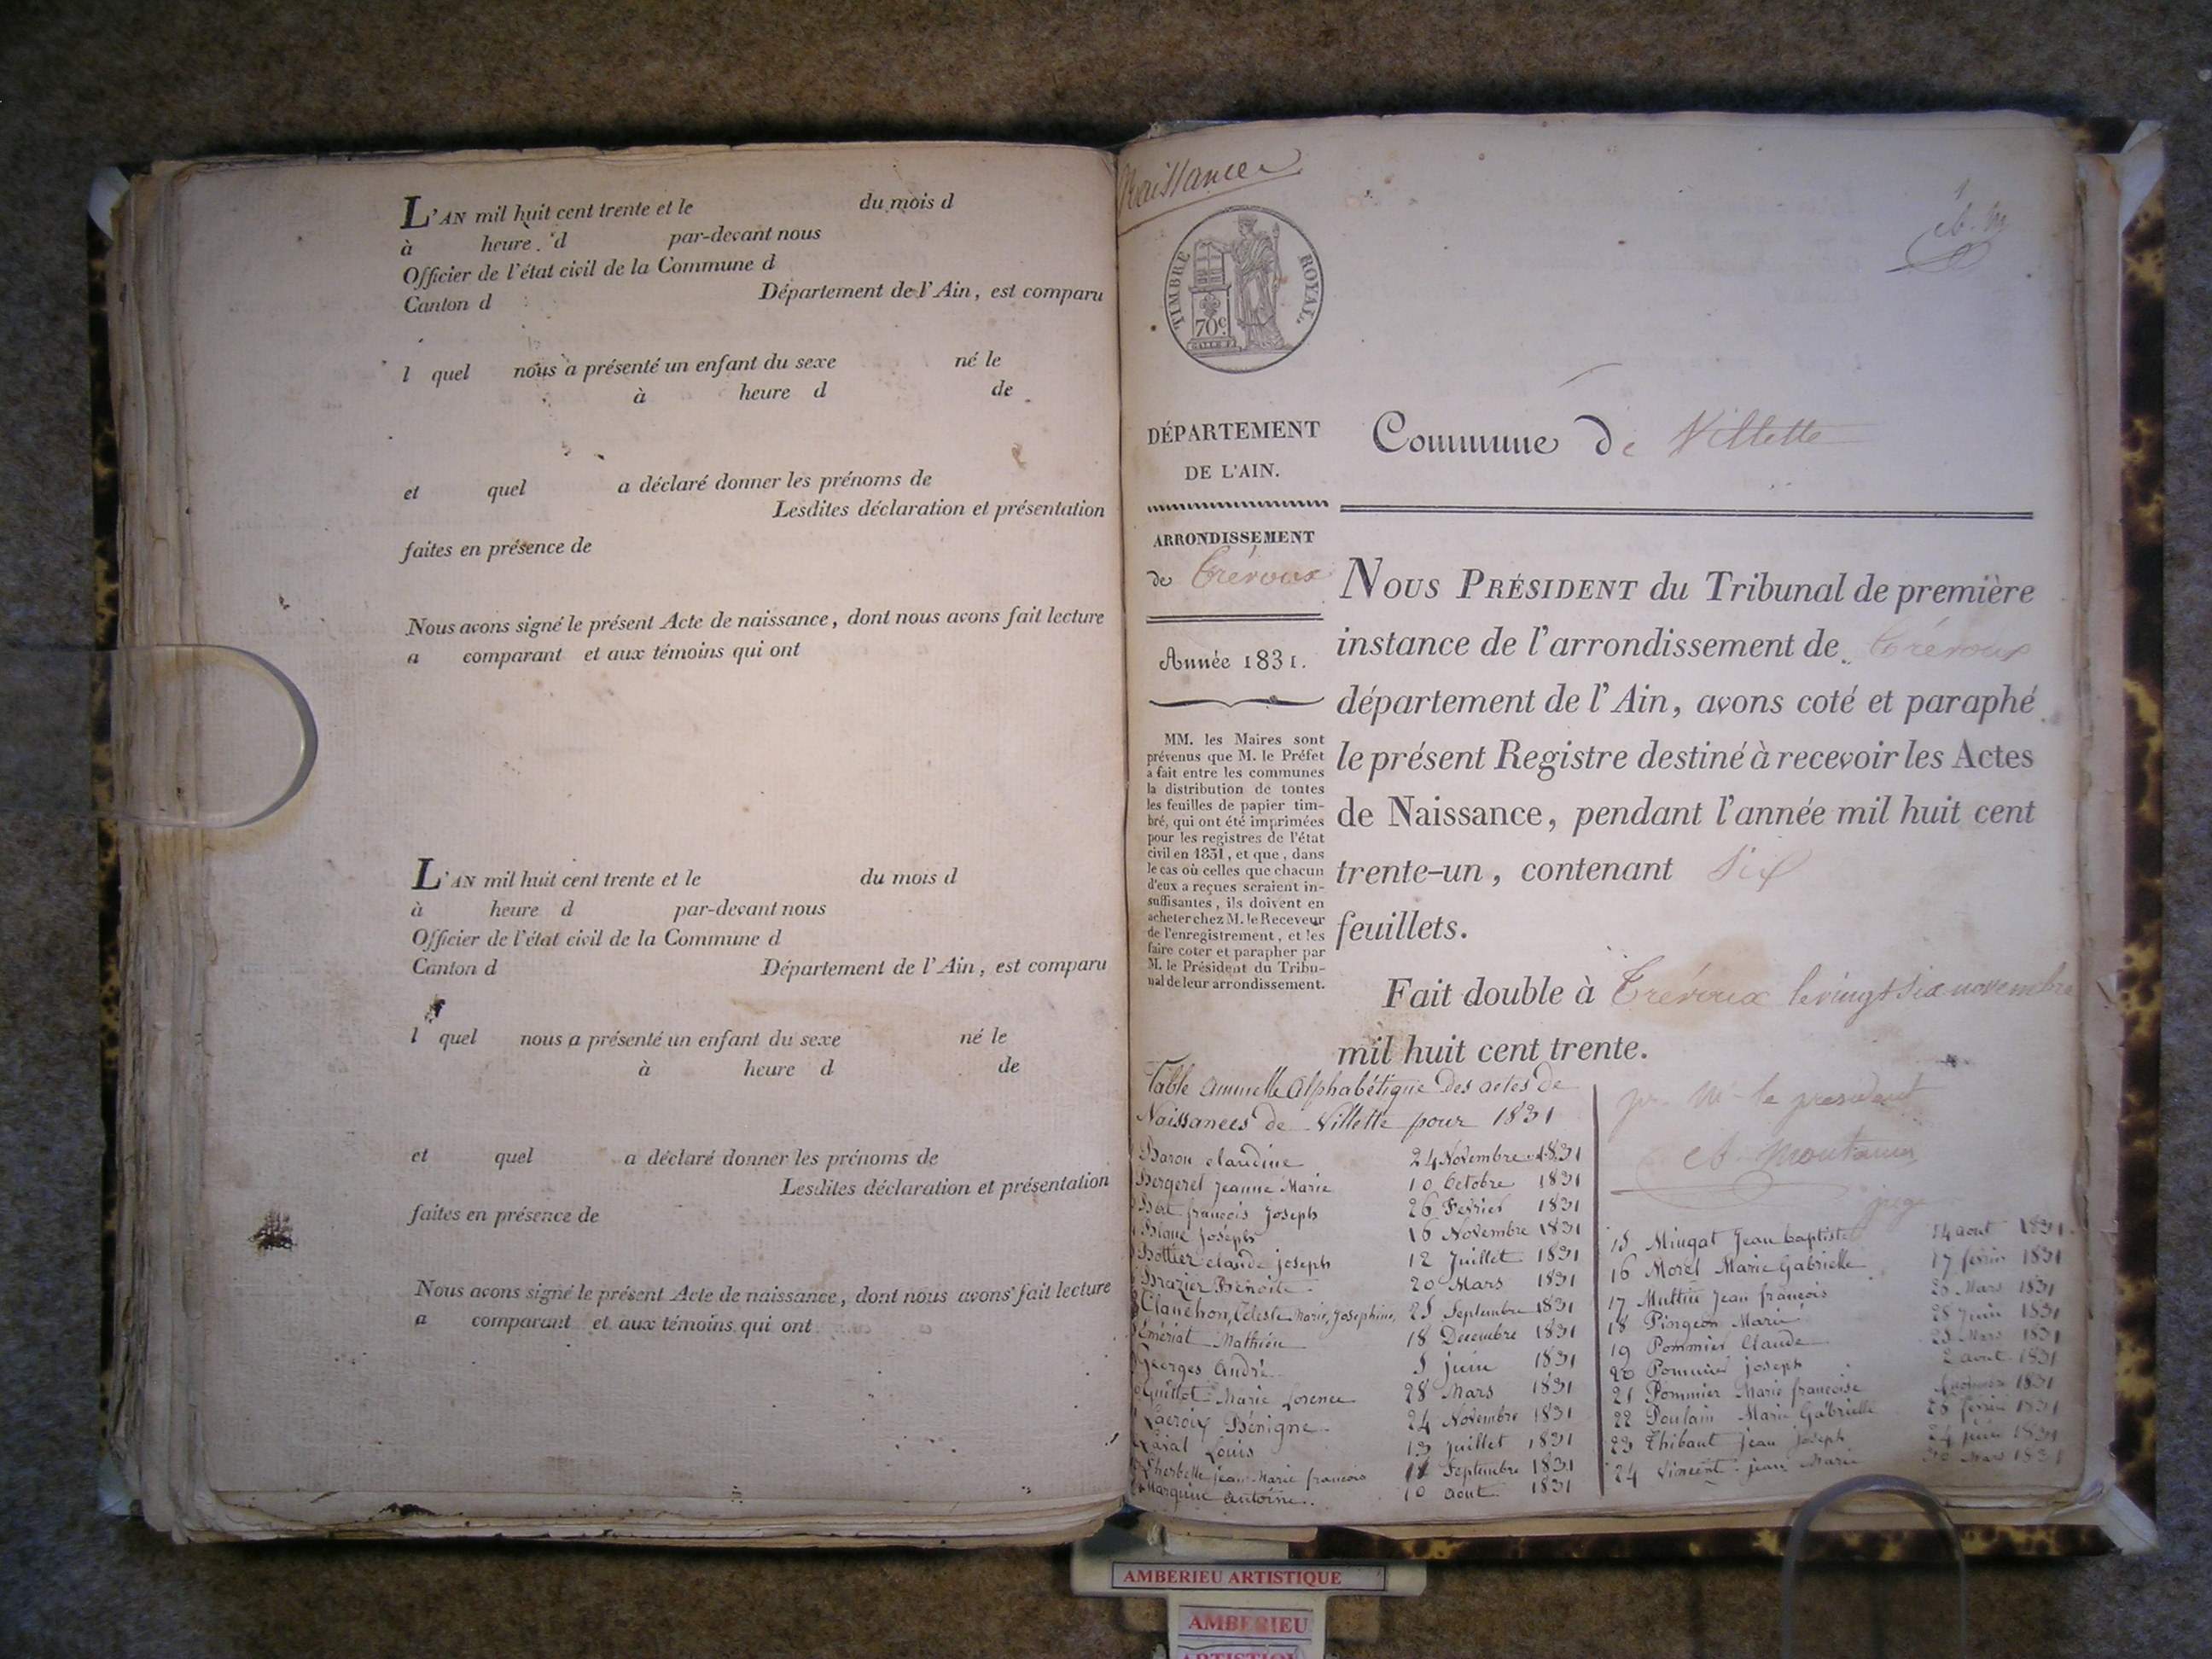 L'AN mil huit cent trente et le du mois d
à heure d par-devant nous
Officier de l'état civil de la Commune d
Canton d Département de l'Ain, est comparu
l quel nous a présenté un enfant du sexe né le
à heure d de
et quel a déclaré donner les prénoms de
Lesdites déclaration et présentation
faites en présence de
Nous avons signé le présent Acte de naissance, dont nous avons fait lecture
a comparant et aux témoins qui ont
L'AN mil huit cent trente et le du mois d
à heure d par-devant nous
Officier de l'état civil de la Commune d
Canton d Département de l'Ain, est comparu
l quel nous a présenté un enfant du sexe né le
à heure d de
et quel a déclaré donner les prénoms de
Lesdites déclaration et présentation
faites en présence de
Nous avons signé le présent Acte de naissance, dont nous avons fait lecture
a comparant et aux témoins qui ont
Naissances
1
TIMBRE ROYAL
70c
DÉPARTEMENT
DE L'AIN.
ARRONDISSEMENT
de Trévoux
Année 1831.
MM. les Maires sont
prévenus que M. le Préfet
a fait entre les communes
la distribution de toutes
les feuilles de papier tim-
bré, qui ont été imprimées
pour les registres de l'état
civil en 1831, et que, dans
le cas où celles que chacun
d'eux a reçues seraient in-
suffisantes, ils doivent en
acheter chez M. le Receveur
de l'enregistrement, et les
faire coter et parapher par
M. le Président du Tribu-
nal de leur arrondissement.
Commune de Villette
NOUS PRÉSIDENT du Tribunal de première
instance de l'arrondissement de Trévoux
département de l'Ain, avons coté et paraphé
le présent Registre destiné à recevoir les Actes
de Naissance, pendant l'année mil huit cent
trente-un, contenant six
feuillets.
Fait double à Trévoux le vingt six novembre
mil huit cent trente.
pr. M. le president
juge
Table annuelle Alphabétique Des actes de
Naissances de Villette pour 1831
Baron claudine 24 Novembre 1831
Bergeret Jeanne Marie 10 Octobre 1831
Bert françois Joseph 26 Fevrier 1831
Blanc Joseph 16 Novembre 1831
Bottier claude joseph 12 Juillet 1831
Brazier Benoite 20 Mars 1831
Clanchon, Céleste Marie, Josephine, 25 Septembre 1831
Emeriat Mathieu 18 Decembre 1831
Georges André 5 juin 1831
Guillot Marie Lorence 28 Mars 1831
Lacroix Bénigne 24 Novembre 1831
Laval Louis 13 Juillet 1831
Lherbette jean Marie francois 11 Septembre 1831
Marquin antoine 10 aout 1831
15 Mingat Jean baptiste 14 aout 1831
16 Morel Marie Gabrielle 17 fevrier 1831
17 Muttin Jean francois 25 Mars 1831
18 Pingeon Marie 28 Juin 1831
19 Pommier Claude 25 Mars 1831
20 Pommier joseph 2 aout 1831
21 Pommier Marie francoise 1831
22 Poulain Marie Gabrielle 26 fevrier 1831
23 Thibaut jean Joseph 24 juin 1831
24 Vincent jean Marie Mars 1831
AMBERIEU ARTISTIQUE
AMBERIEU
ARTISTIQUE